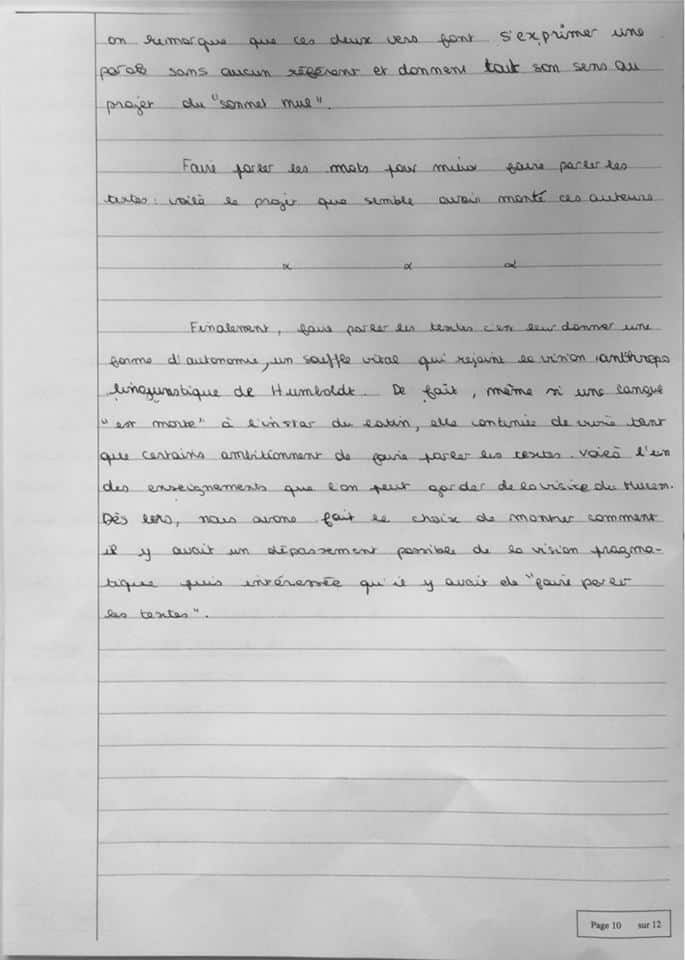 on remarque que ces deux vers font s'exprimer une
parole sans aucun référent et donnent tout son sens au
projet du "sonnet nul".
Faire parler les mots pour mieux faire parler les
textes : voilà le projet que semble avoir monté ces auteurs
∝ ∝ ∝
Finalement, faire parler les textes c'est leur donner une
forme d'autonomie, un souffle vital qui rejoint la vision anthropo
linguistique de Humboldt. De fait, même si une langue
"est morte" à l'instar du latin, elle continue de vivre tant
que certains ambitionnent de faire parler les textes. Voilà l'un
des enseignements que l'on peut garder de la visite du
Dès lors, nous avons fait le choix de montrer comment
il y avait un dépassement possible de la vision pragma-
tique puis intéressée qu'il y avait de "faire parler
les textes".
Page 10 sur 12